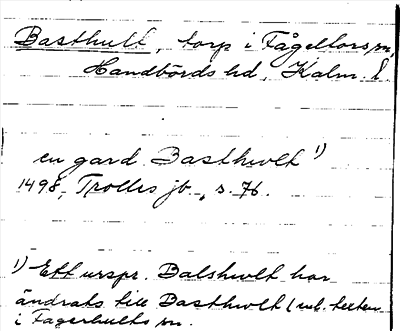 Basthult, torp i Fågelfors sn,
Handbörds hd, Kalm. l.
en gard Basthwlt 1)
1498, Trolles jb, s. 76.
1) Ett urspr. Balshwlt har
ändrats till Basthwlt (enl. texten
i Fagerhults sn.